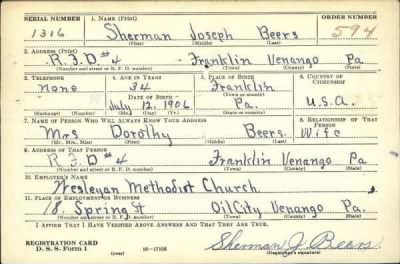 SERIAL NUMBER 1. NAME (Print) ORDER NUMBER
1316 Sherman Joseph Beers 594
(First) (Middle) (Last)
2. ADDRESS (Print)
R.F.D #4 Franklin Venango Pa
(Number and street or R. F. D. number) (Town) (County) (State)
3. TELEPHONE 4. AGE IN YEARS 5. PLACE OF BIRTH 6. COUNTRY OF CITIZENSHIP
none 34 Franklin
DATE OF BIRTH (Town or county)
July 12, 1906 Pa. U.S.A.
(Exchange) (Number) (Mo.) (Day) (Yr.) (State or country)
7. NAME OF PERSON WHO WILL ALWAYS KNOW YOUR ADDRESS 8. RELATIONSHIP OF THAT PERSON
Mrs Dorothy Beers. Wife
(Mr., Mrs., Miss) (First) (Middle) (Last)
9. ADDRESS OF THAT PERSON
R.F.D #4 Franklin Venango Pa
(Number and street or R. F. D. number) (Town) (County) (State)
10. EMPLOYER'S NAME
Wesleyan Methodist Church.
11. PLACE OF EMPLOYMENT OR BUSINESS
18 Spring St Oil City Venango Pa.
(Number and street or R. F. D. number) (Town) (County) (State)
I AFFIRM THAT I HAVE VERIFIED ABOVE ANSWERS AND THAT THEY ARE TRUE.
REGISTRATION CARD
D. S. S. Form 1 (over) 16-17105 Sherman J Beers
(Registrant's signature)